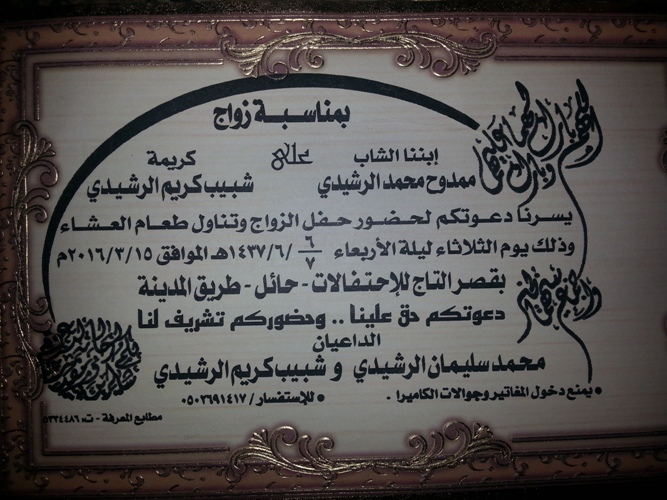 بمناسبة زواج
إبننا الشاب على كريمة
ممدوح محمد الرشيدي شبيب كريم الرشيدي
اللهم بارك لهما وبارك عليهما
يسرنا دعوتكم لحضور حفل الزواج وتناول طعام العشاء
وذلك يوم الثلاثاء ليلة الأربعاء ٦/٧ /١٤٣٧/٦هـ الموافق ٢٠١٦/٣/١٥م
بقصر التاج للإحتفالات - حائل - طريق المدينة
واجمع بينهما في خير
دعوتكم حق علينا .. وحضوركم تشريف لنا
الداعيان
محمد سليمان الرشيدي و شبيب كريم الرشيدي
• يمنع دخول المفاتير وجوالات الكاميرا . • للإستفسار / ٠٥٠٣٦٩١٤١٧
مطابع المعرفة - ت: ٥٣٣٤٤٨٦